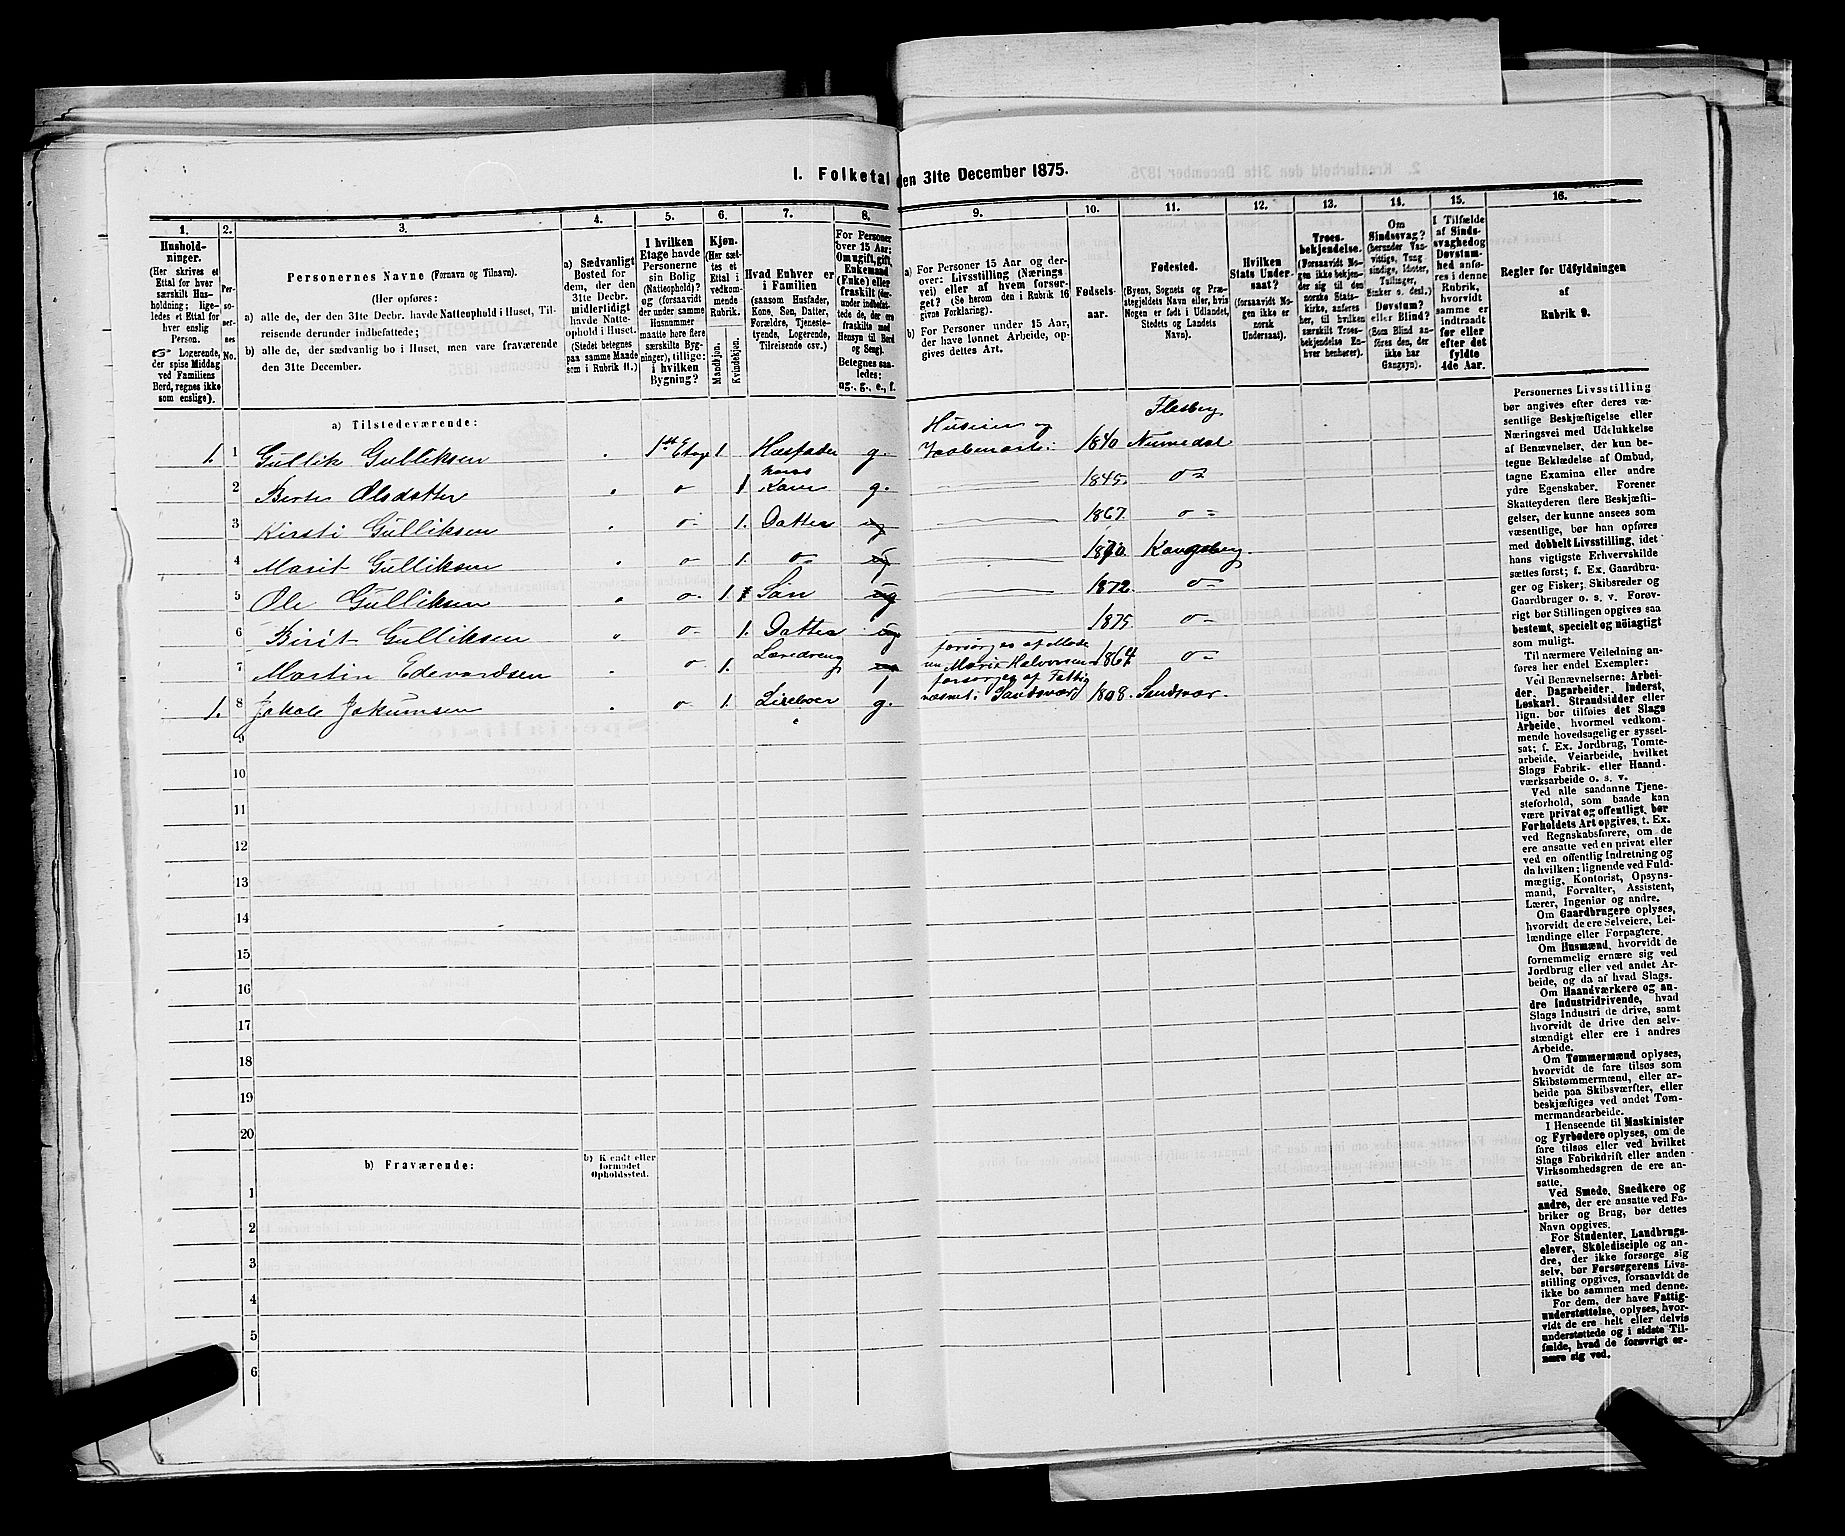 I. Folketal den 31te December 1875.
1.
2.
3.
4.
5.
6.
7.
8.
9.
10.
11.
12.
13.
14.
15.
16.
Hushold-
ninger.
(Her skrives et
Ettal for hver
særskilt Hus-
holdning; lige-
ledes et Ettal for
hver enslig
Person.
☞ Logerende,
der spise Middag
ved Familiens
Bord, regnes ikke
som enslige).
Per-
so-
ner-
nes
No.
Personernes Navne (Fornavn og Tilnavn).
(Her opføres:
a) alle de, der den 31te Decbr. havde Natteophold i Huset, Til-
reisende derunder indbefattede;
b) alle de, der sædvanlig bo i Huset, men vare fraværende
den 31te December.
a) Sædvanligt
Bosted for
dem, der den
31te Decbr.
midlertidigt
havde Natte-
ophold i Huset.
(Stedet betegnes
paa samme Maade
som i Rubrik 11.)
I hvilken
Etage havde
Personerne
sin Bolig
(Natteophold)?
og (forsaavidt
der under samme
Husnummer
maatte høre flere
særskilte Byg-
ninger), tillige:
i hvilken
Bygning?
Kjøn.
(Her sæt-
tes et
Ettal i
vedkom-
mende
Rubrik.)
Mandkjøn.
Kvindekjøn.
Hvad Enhver er
i Familien
(saasom Husfader,
Kone, Søn, Datter,
Forældre, Tjeneste-
tyende, Logerende,
Tilreisende osv.)
For Personer
over 15 Aar:
Om ugift, gift,
Enkemand
(Enke) eller
fraskilt (der-
under indbefat-
tede de, der ere
fraskilte med
Hensyn til Bord
og Seng).
Betegnes saa-
ledes:
ug., g., e., f.
a) For Personer 15 Aar og der-
over: Livsstilling (Nærings
vei) eller af hvem forsør-
get? (Se herom den i Rubrik 16
givne Forklaring).
b) For Personer under 15 Aar,
der have lønnet Arbeide, op-
gives dettes Art.
Fødsels-
aar.
Fødested.
(Byens, Sognets og Præ-
stegjeldets Navn eller, hvis
Nogen er født i Udlandet,
Stedets og Landets
Navn).
Hvilken
Stats Under-
saat?
(forsaavidt No-
gen ikke er
norsk
Undersaat).
Troes-
bekjendelse.
(Forsaavidt No-
gen ikke bekjen-
der sig til den
norske Stats-
kirke, anføres
her, til hvilken
særskilt Troes-
bekjendelse En-
hver henhører).
Om
Sindssvag?
(herunder Van-
vittige, Tung
sindige, Idioter,
Tullinger,
Sinker o. desl.)
Døvstum?
eller Blind?
(Som Blind an-
føres den, der
ikke har
Gangsyn).
I Tilfælde
af Sinds-
svaghed og
Døvstum-
hed anfø-
res i denne
Rubrik,
hvorvidt
samme er
indtraadt
før eller
efter det
fyldte
4de Aar.
Regler for Udfyldningen
af
Rubrik 9.
a) Tilstedeværende:
1. 1 Gullik Gulliksen 1ste Etage 1 Husfader g. Huseier og Vaabenarb: 1840 Flesberg Numedal
2 Berte Olsdatter o 1 hans Kone g. 1845 o
3 Kirsti Gulliksen o 1. Datter ug 1867. o
4 Marit Gulliksen o 1. o ug 1870. Kongsberg
5 Ole Gulliksen o 1. Søn ug 1872. o
6 Birit Gulliksen o 1. Datter ug 1875. o
7 Martin Edevardsen o 1. Læredreng ug forsørges af Mode
ren Marie Halvorsen 1864 o
1. 8 Jakob Jokumsen o 1. g. forsørges af Fattig
væsnet i Sandsværd 1808. Sandsvær.
9
10
11
12
13
14
15
16
17
18
19
20
b) Fraværende:
b) Kendt eller
formodet
Opholdssted.
1
2
3
4
5
6
Personernes Livsstilling
bør angives efter deres væ-
sentlige Beskjæftigelse eller
Næringsvei med Udelukkelse
af Benævnelser, der kun be-
tegne Beklædelse af Ombud,
tagne Examina eller andre
ydre Egenskaber. Forener
Skatteyderen flere Beskjæfti-
gelser, der kunne ansees som
væsentlige, bør han opføres
med dobbelt Livsstilling, idet
hans vigtigste Erhvervskilde
sættes først; f. Ex. Gaardbru-
ger og Fisker; Skibsreder og
Gaardbruger o. s. v. Forøv-
rigt bør Stillingen opgives saa
bestemt, specielt og nøiagtigt
som muligt.
Til nærmere Veiledning an-
føres her endel Exempler:
Ved Benævnelserne: Arbei-
der, Dagarbeider, Inderst,
Løskarl, Strandsidder eller
lign. bør tilføies det Slags
Arbeide, hvormed vedkom-
mende hovedsagelig er syssel-
sat; f. Ex. Jordbrug, Tomte-
arbeide, Veiarbeide, hvilket
Slags Fabrik- eller Haand-
værksarbeide o. s. v.
Ved alle saadanne Tjene-
steforhold, som baade kan
være privat og offentligt, bør
Forholdets Art opgives, t. Ex.
ved Regnskabsførere, om de
ere ansatte ved en privat eller
ved en offentlig Indretning og
da hvilken; lignende ved Fuld-
mægtig, Kontorist, Opsyns-
mand, Forvalter, Assistent,
Lærer, Ingeniør og andre.
Om Gaardbrugere oplyses,
hvorvidt de ere Selveiere, Lei-
lændinge eller Forpagtere.
Om Husmænd, hvorvidt de
fornemmelig ernære sig ved
Jordbrug eller ved andet Ar-
beide, og da af hvad Slags.
Om Haandværkere og an-
dre Industridrivende, hvad
Slags Industri de drive, samt
hvorvidt de drive den selv-
stændigt eller ere i andres
Arbeide.
Om Tømmermænd oplyses,
hvorvidt de fare tilsøs som
Skibstømmermænd, eller ar-
beide paa Skibsværfter, eller
beskjæftiges ved andet Tøm-
mermandsarbeide.
I Henseende til Maskinister
og Fyrbødere oplyses, om de
fare tilsøs eller ved hvilket
Slags Fabrikdrift eller anden
Virksomhedsgren de ere an-
satte.
Ved Smede, Snedkere og
andre, der ere ansatte ved Fa-
briker og Brug, bør dettes
Navn opgives.
For Studenter, Landbrugs-
elever, Skoledisciple og an-
dre, der ikke forsørge sig
selv, bør Forsørgerens Livs-
stilling opgives, forsaavidt de
ikke bo sammen med denne.
For dem, der have Fattig-
understøttelse, oplyses, hvor-
vidt de ere helt eller delvis
understøttede og i sidste Til-
fælde, hvad de forøvrigt er-
nære sig ved.